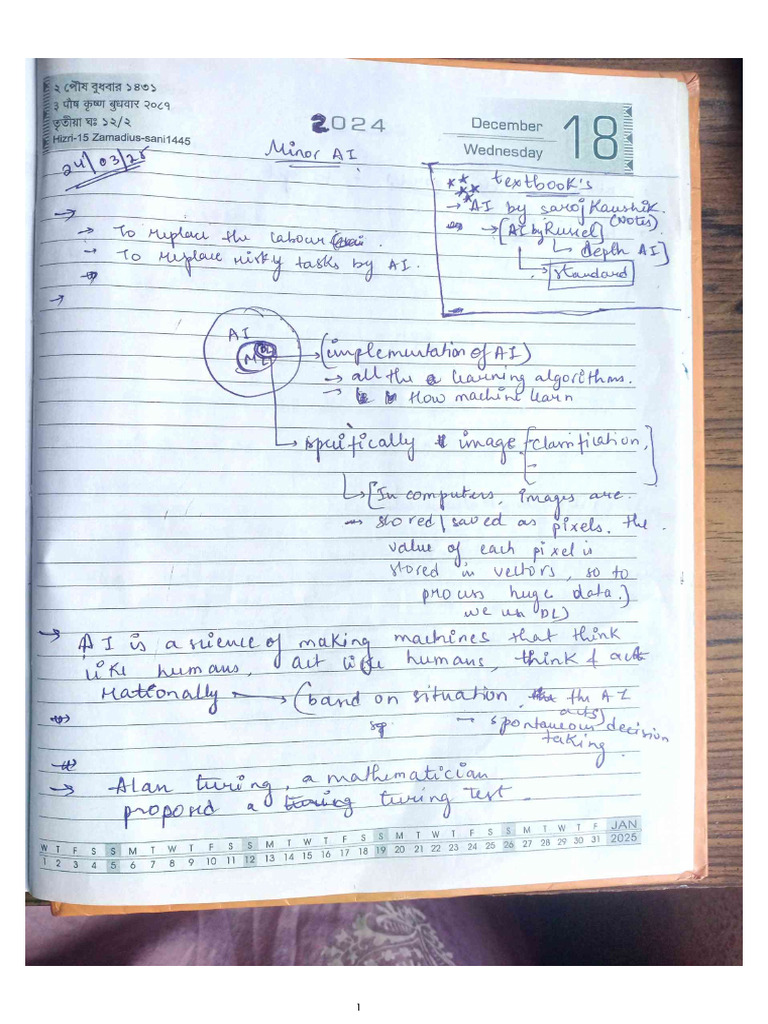 ২ পৌষ বুধবার ১৪৩১
৩ পৌষ কৃষ্ণ বুধবার ২০৮১
তৃতীয়া ঘঃ ১২/২
Hizri-15 Zamadius-sani1445
2024
December
Wednesday
18
24/03/25
Minor AI
textbook's
→ AI by saroj Kaushik.
(Notes)
→ [AI by Russel]
↳ depth AI]
↳ standard
→ To replace the labour
→ To replace risky tasks by AI.
AI
ML
DL
→ (implementation of AI)
→ all the learning algorithms.
→ How machine learn
→ specifically image [classification,
↳ [In computers, images are
stored/saved as pixels. the
value of each pixel is
stored in vectors, so to
process huge data.)
we use DL)
→ AI is a science of making machines that think
like humans, act like humans, think & act
rationally → (based on situation the AI
acts)
→ spontaneous decision
taking
→ Alan turing, a mathematician
proposed a turing test.
W T F S S M T W T F S S M T W T F S S M T W T F S S M T W T F JAN
1 2 3 4 5 6 7 8 9 10 11 12 13 14 15 16 17 18 19 20 21 22 23 24 25 26 27 28 29 30 31 2025
1